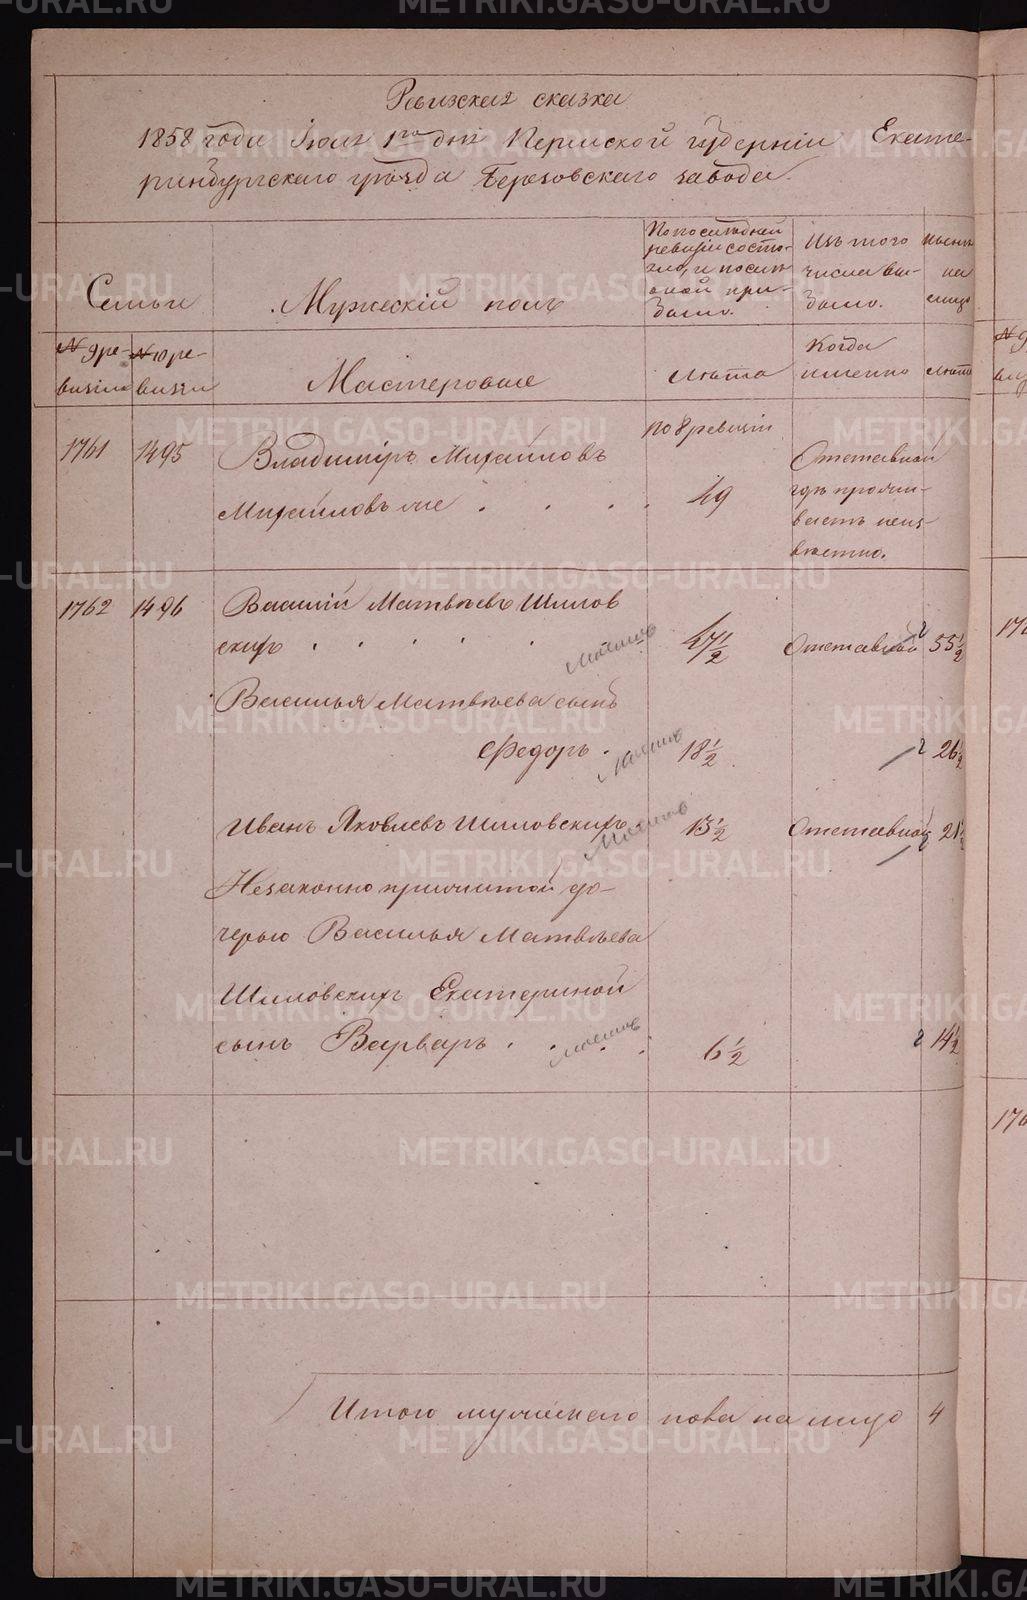 Ревизская сказка
1858 года Іюля 1го дня Пермской губерніи Екате-
ринбургскаго уѣзда Березовскаго завода.
Семьи
Мужескій полъ
По послѣдней ревизіи состо-
яло, и послѣ оной при-
было.
Изъ того числа вы-
было.
Нынѣ на лицо
№ 9 ре-
визіи
№ 10 ре-
визіи
Мастеровые
Лѣта
Когда
именно
Лѣта
1761
1495
Владиміръ Михайловъ
Михайловъ же
по 8 ревизіи
49
Отставной
гдѣ прожи-
ваетъ неиз-
вѣстно.
1762
1496
Василій Матвѣевъ Шилов
скихъ
47 1/2
Отставной
55 1/2
Василья Матвѣева сынъ
Федоръ
18 1/2
26 1/2
Иванъ Яковлевъ Шиловскихъ
13 1/2
Отставной
21 1/2
Незаконно прижитой до-
черью Василья Матвѣева
Шиловскихъ Екатериной
сынъ Варваръ
6 1/2
14 1/2
Итого мужескаго пола на лицо 4
METRIKI.GASO-URAL.RU